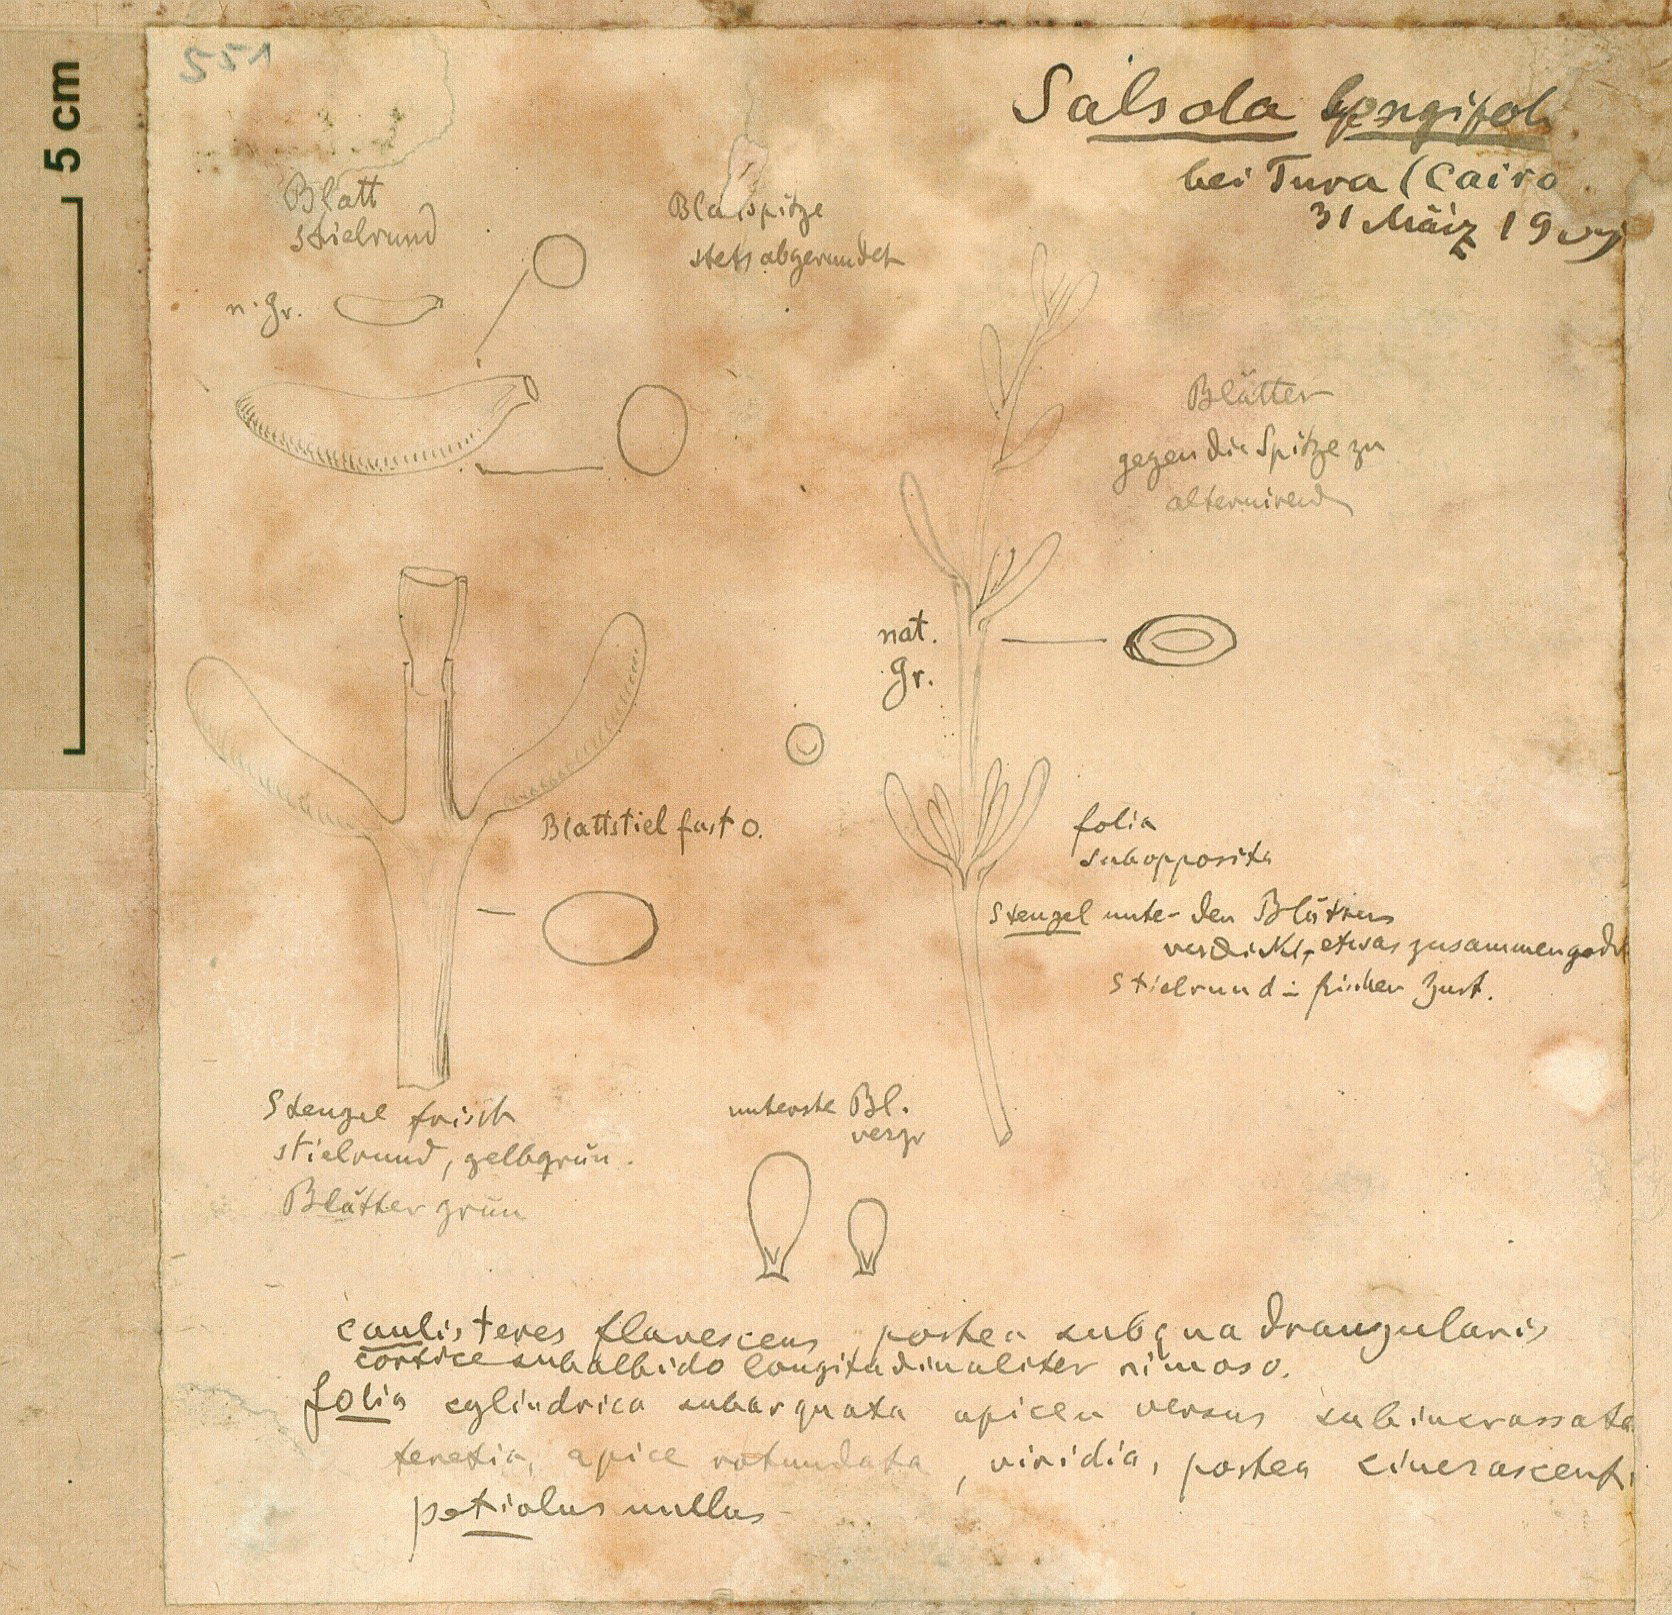 5 cm
551
Salsola longifol
bei Tura (Cairo
31 März 19
Blatt
stielrund
Blattspitze
stets abgerundet
n. Gr.
Blätter
gegen die Spitze zu
alternirend
nat.
Gr.
Blattstiel fast 0.
folia
subopposita
Stengel unter den Blättern
verdickt, etwas zusammengedr
stielrund in frischer Zust.
Stengel frisch
stielrund, gelbgrün.
Blätter grün
unterste Bl.
vergr
caulis teres flavescens postea subquadrangularis
cortice subalbido longitudinaliter rimoso.
folia cylindrica subarquata apicem versus subincrassata
teretia, apice rotundata, viridia, postea cinerascenti
petiolus nullus